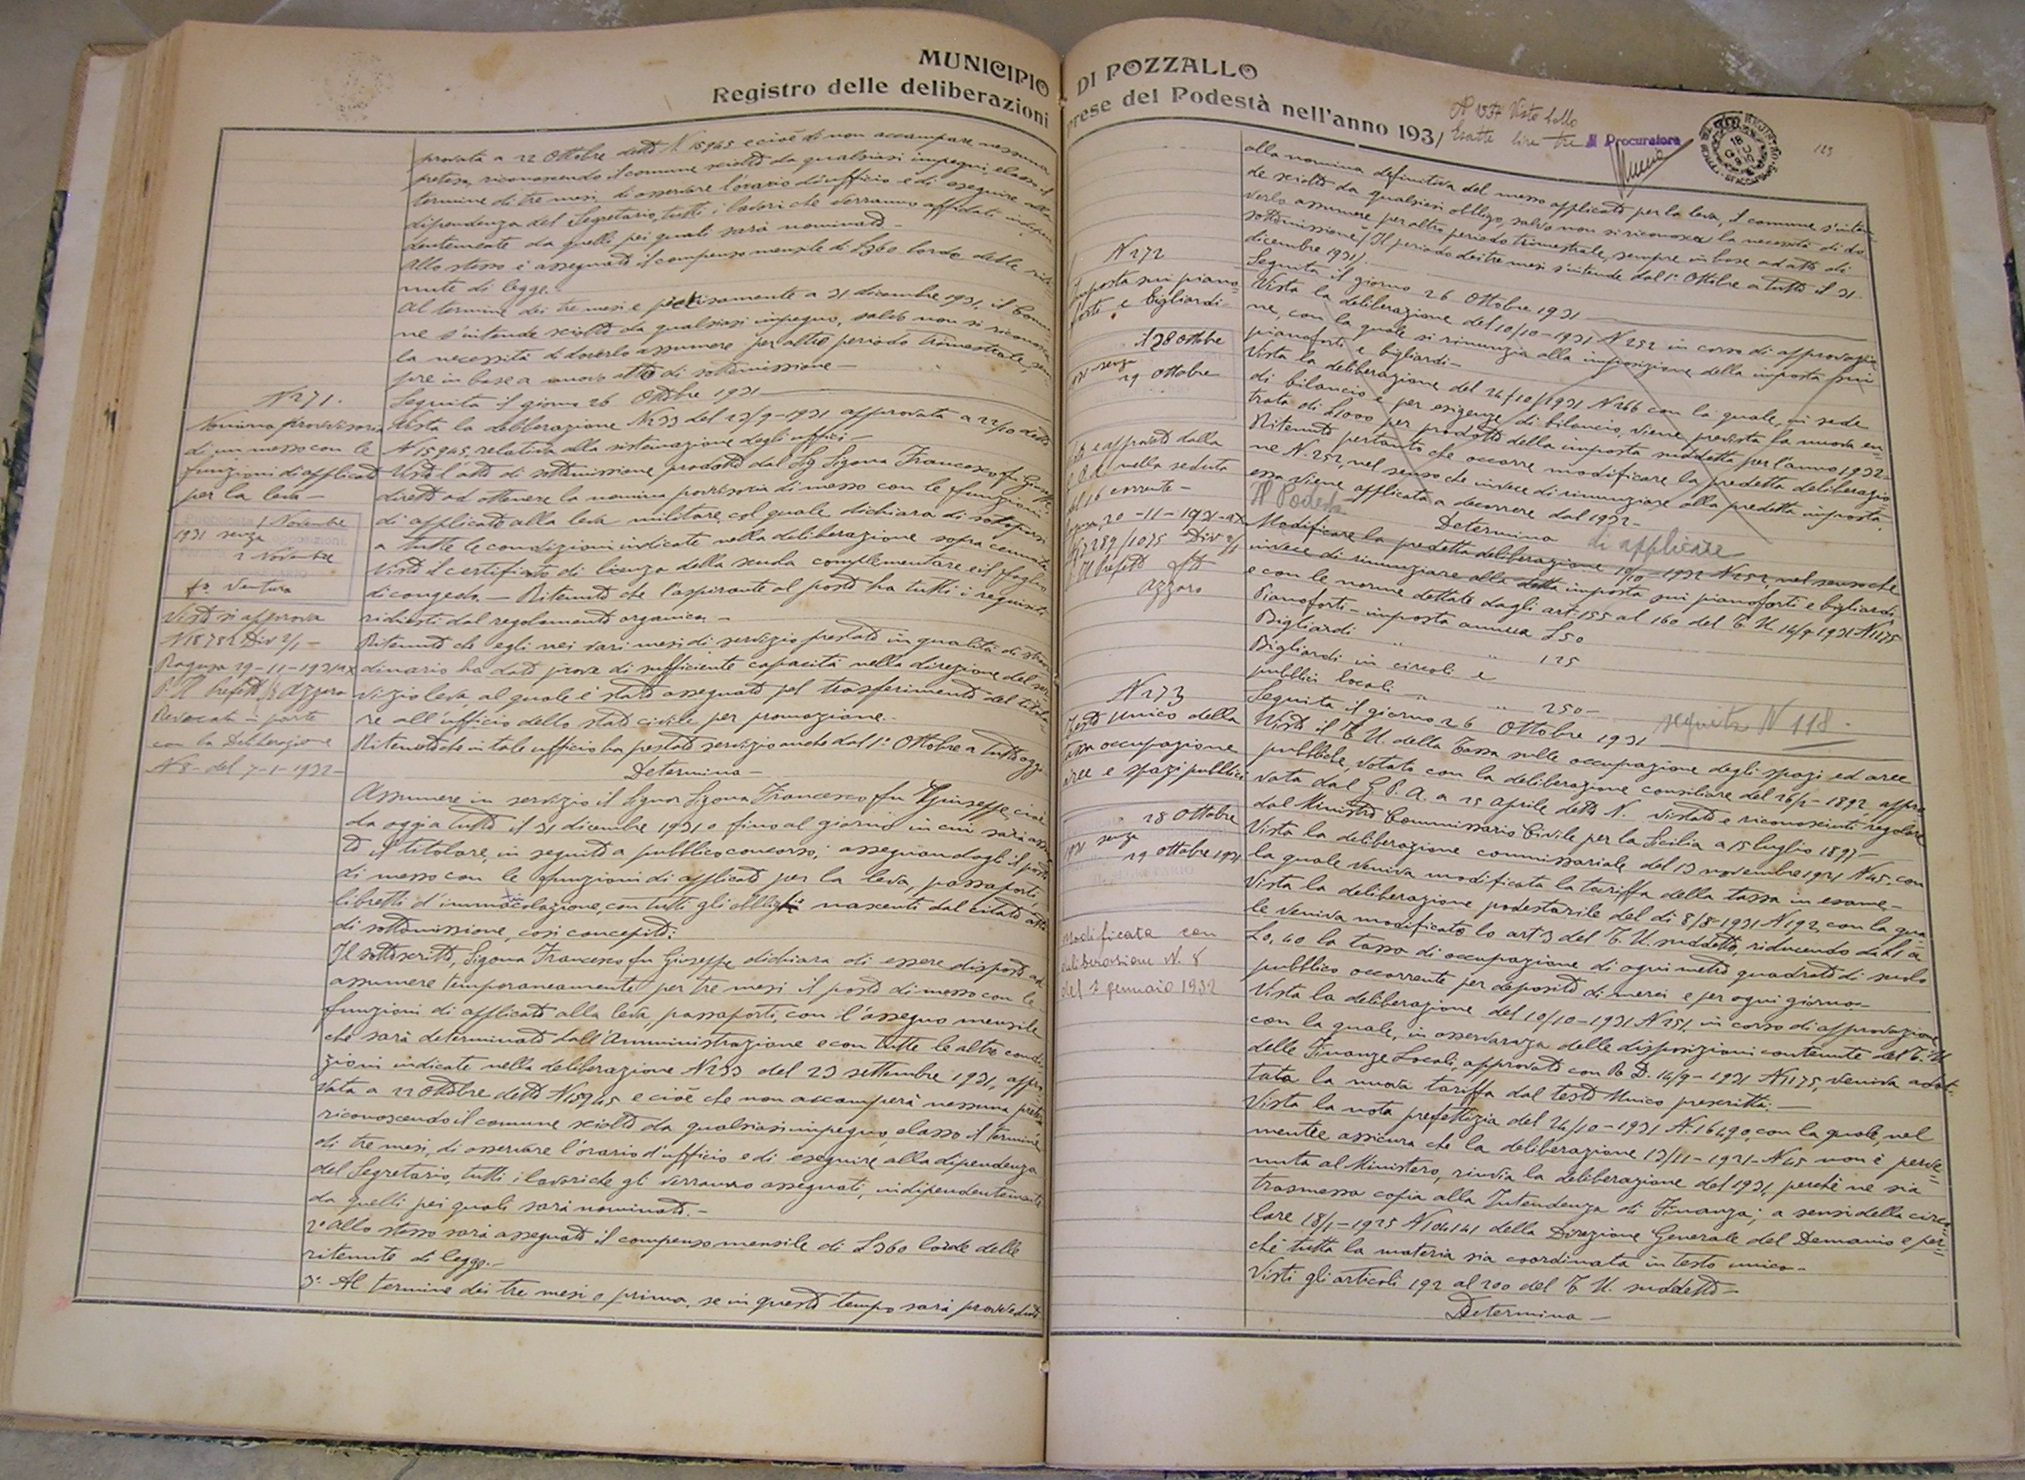 MUNICIPIO DI POZZALLO
Registro delle deliberazioni prese del Podestà nell'anno 1931
provata a 22 Ottobre detto N 15945 e cioè di non accampare nessuna
pretesa, riconoscendo il comune sciolto da qualsiasi impegni, elasso il
termine di tre mesi, di osservare l'orario d'ufficio e di eseguire alla
dipendenza del Segretario, tutti i lavori che verranno affidati indipen
dentemente da quelli pei quali sarà nominato
Allo stesso è assegnato il compenso mensile di L360 lordo delle rite
nute di legge.
Al termine dei tre mesi e precisamente a 31 dicembre 1931, il Comu
ne s'intende sciolto da qualsiasi impegno, salvo non si riconosca
la necessità di doverlo assumere per altro periodo trimestrale, sem
pre in base a nuovo atto di sottomissione —
N 271.
Nomina provvisoria
di un messo con le
funzioni di applicato
per la leva —
1 Novembre
1931 senza
2 Novembre
fo Ventura
Visto si approva
N 18752 Div 2/1 —
Ragusa 29-11-1931
P. Il Prefetto f/ Azzaro
Revocata in parte
con la Deliberazione
N 8 - del 7-1-1932 —
Seguita il giorno 26 Ottobre 1931
Vista la deliberazione N 233 del 23/9-1931 approvata a 22/10 detto
N 15945, relativa alla sistemazione degli uffici —
Visto l'atto di sottomissione prodotto dal Sig Sigona Francesco fu Giuseppe
diretto ad ottenere la nomina provvisoria di messo con le funzioni
di applicato alla leva militare, col quale dichiara di sottoporsi
a tutte le condizioni indicate nella deliberazione sopra cennata
Visto il certificato di licenza della scuola complementare e il foglio
di congedo. — Ritenuto che l'aspirante al posto ha tutti i requisiti
richiesti dal regolamento organico —
Ritenuto che egli nei vari mesi di servizio prestato in qualità di straor
dinario ha dato prova di sufficiente capacità nella direzione del ser
vizio leva, al quale è stato assegnato pel trasferimento del titola
re all'ufficio dello stato civile per promozione.
Ritenuto che in tale ufficio ha prestato servizio anche dal 1° Ottobre a tutt'oggi
Determina —
Assumere in servizio il Signor Sigona Francesco fu Giuseppe, cioè
da oggi a tutto il 31 dicembre 1931 o fino al giorno in cui sarà assun
to il titolare, in seguito a pubblico concorso; assegnandogli il posto
di messo con le funzioni di applicato per la leva, passaporti,
libretti d'immatricolazione, con tutti gli obblighi nascenti dal citato atto
di sottomissione, così concepito:
Il sottoscritto, Sigona Francesco fu Giuseppe dichiara di essere disposto ad
assumere temporaneamente per tre mesi il posto di messo con le
funzioni di applicato alla leva, passaporti, con l'assegno mensile
che sarà determinato dall'Amministrazione e con tutte le altre condi
zioni indicate nella deliberazione N 233 del 23 settembre 1931, appro
vata a 22 Ottobre detto N 15945 e cioè che non accamperà nessuna pretesa
riconoscendo il comune sciolto da qualsiasi impegno, elasso il termine
di tre mesi, di osservare l'orario d'ufficio e di eseguire alla dipendenza
del Segretario, tutti i lavori che gli verranno assegnati, indipendentemente
da quelli pei quali sarà nominato. —
2° Allo stesso sarà assegnato il compenso mensile di L360 lorde delle
ritenute di legge. —
3° Al termine dei tre mesi o prima, se in questo tempo sarà provveduto
Visto bollo
Esatte lire tre
Il Procuratore
123
alla nomina definitiva del messo applicato per la leva, il comune s'inten
de sciolto da qualsiasi obbligo, salvo non si riconosca la necessità di do
verlo assumere per altro periodo trimestrale, sempre in base ad atto di
sottomissione/ Il periodo dei tre mesi s'intende dal 1° Ottobre a tutto il 31
dicembre 1931/.
N 272
Imposta sui piano
forti e bigliardi
28 Ottobre
1931 senza
29 Ottobre
approvato dalla
nella seduta
del 16 corrente —
Ragusa, 20-11-1931
Div 2/1
Il Prefetto
Azzaro
Seguita il giorno 26 Ottobre 1931
Vista la deliberazione del 10/10-1931 N 252 in corso di approvazio
ne, con la quale si rinunzia alla imposizione della imposta sui
pianoforti e bigliardi —
Vista la deliberazione del 24/10/1931 N 266 con la quale, in sede
di bilancio e per esigenze di bilancio, viene prevista la nuova en=
trata di L1000 per prodotto della imposta suddetta per l'anno 1932 —
Ritenuto pertanto che occorre modificare la predetta deliberazio
ne N. 252, nel senso che invece di rinunziare alla predetta imposta,
essa viene applicata a decorrere dal 1932 —
Il Podestà
Determina
di applicare
Modificare la predetta deliberazione 10/10-1932 N 252 nel senso che
invece di rinunziare alla detta imposta sui pianoforti e bigliardi
e con le norme dettate dagli art. 155 al 160 del T. U. 14/9-1931 N 1175
Pianoforti - imposta annua L50
Bigliardi " " 125
Bigliardi in circoli e
pubblici locali " " 250 —
seguito N 118.
N 273
Testo Unico della
tassa occupazione
aree e spazi pubblici
28 Ottobre
1931 senza
29 Ottobre 1931
IL SEGRETARIO
modificata con
deliberazione N. 8
del 7 gennaio 1932
Seguita il giorno 26 Ottobre 1931
Visto il T. U. della Tassa sulle occupazione degli spazi ed aree
pubbliche, votato con la deliberazione consiliare del 26/2-1892, appro
vata dal G. P. A. a 25 aprile detto N. vistato e riconosciuto regolare
dal Ministro Commissario Civile per la Sicilia a 15 luglio 1897 —
Vista la deliberazione commissariale del 13 novembre 1921 N 45, con
la quale veniva modificata la tariffa della tassa in esame —
Vista la deliberazione podestarile del dì 8/8-1931 N 192, con la qua
le veniva modificato lo art 3 del T. U. suddetto, riducendo da L1 a
L0,40 la tassa di occupazione di ogni metro quadrato di suolo
pubblico occorrente per deposito di merci e per ogni giorno —
Vista la deliberazione del 10/10-1931 N 251, in corso di approvazione
con la quale, in osservanza delle disposizioni contenute del T. U
delle Finanze Locali, approvato con R. D. 14/9-1931 N 1175, veniva adot
tata la nuova tariffa dal testo unico prescritta. —
Vista la nota prefettizia del 24/10-1931 N. 16490, con la quale, nel
mentre assicura che la deliberazione 13/11-1921-N 45 non è perve=
nuta al Ministero, rinvia la deliberazione del 1931, perchè ne sia
trasmessa copia alla Intendenza di Finanza; a sensi della circo
lare 18/1-1925 N 104141 della Direzione Generale del Demanio e per=
chè tutta la materia sia coordinata in testo unico —
Visti gli articoli 192 al 200 del T. U. suddetto —
Determina —